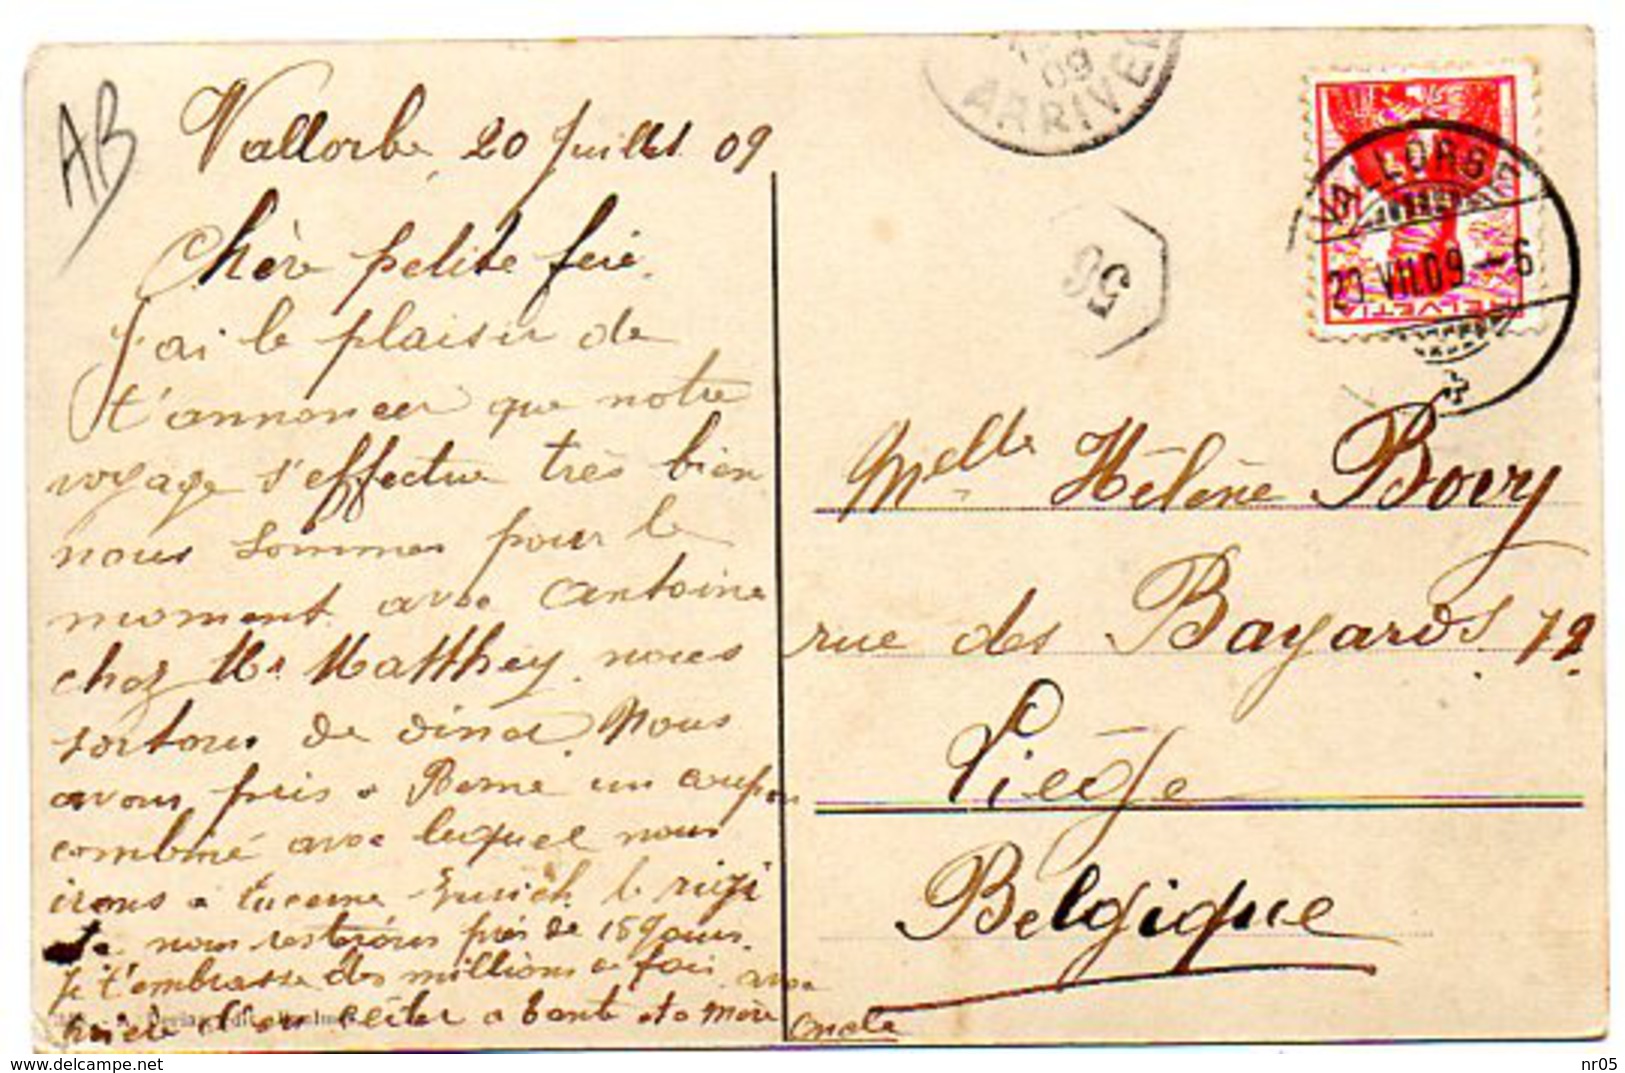 AB
Vallorbe, 20 Juillet 09
Chère petite fée.
J'ai le plaisir de
t'annoncer que notre
voyage s'effectue très bien
nous sommes pour le
moment avec Antoine
chez Mr Matthey, nous
sortons de dîner. Nous
avons pris a Berne un coupon
combiné avec lequel nous
irons a Lucerne Zurich le rigi
nous resterons près de 15 jours.
Je t'embrasse des millions de fois avec
a tante et a Mère
Oncle
ARRIVEE
09
56
VALLORBE
20.VII.09-6
HELVETIA
Melle Hélène Bovy
rue des Bayards 72
Liège
Belgique
delcampe.net
nr05